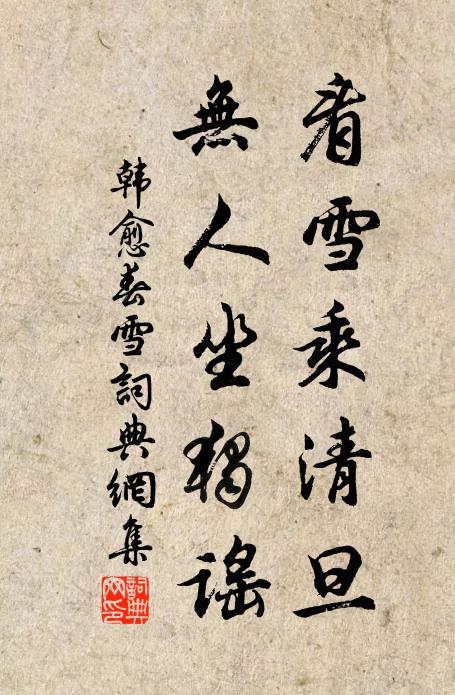 看雪乘清旦
無人坐獨謠
韩愈春雪詞典網集
詞典网印